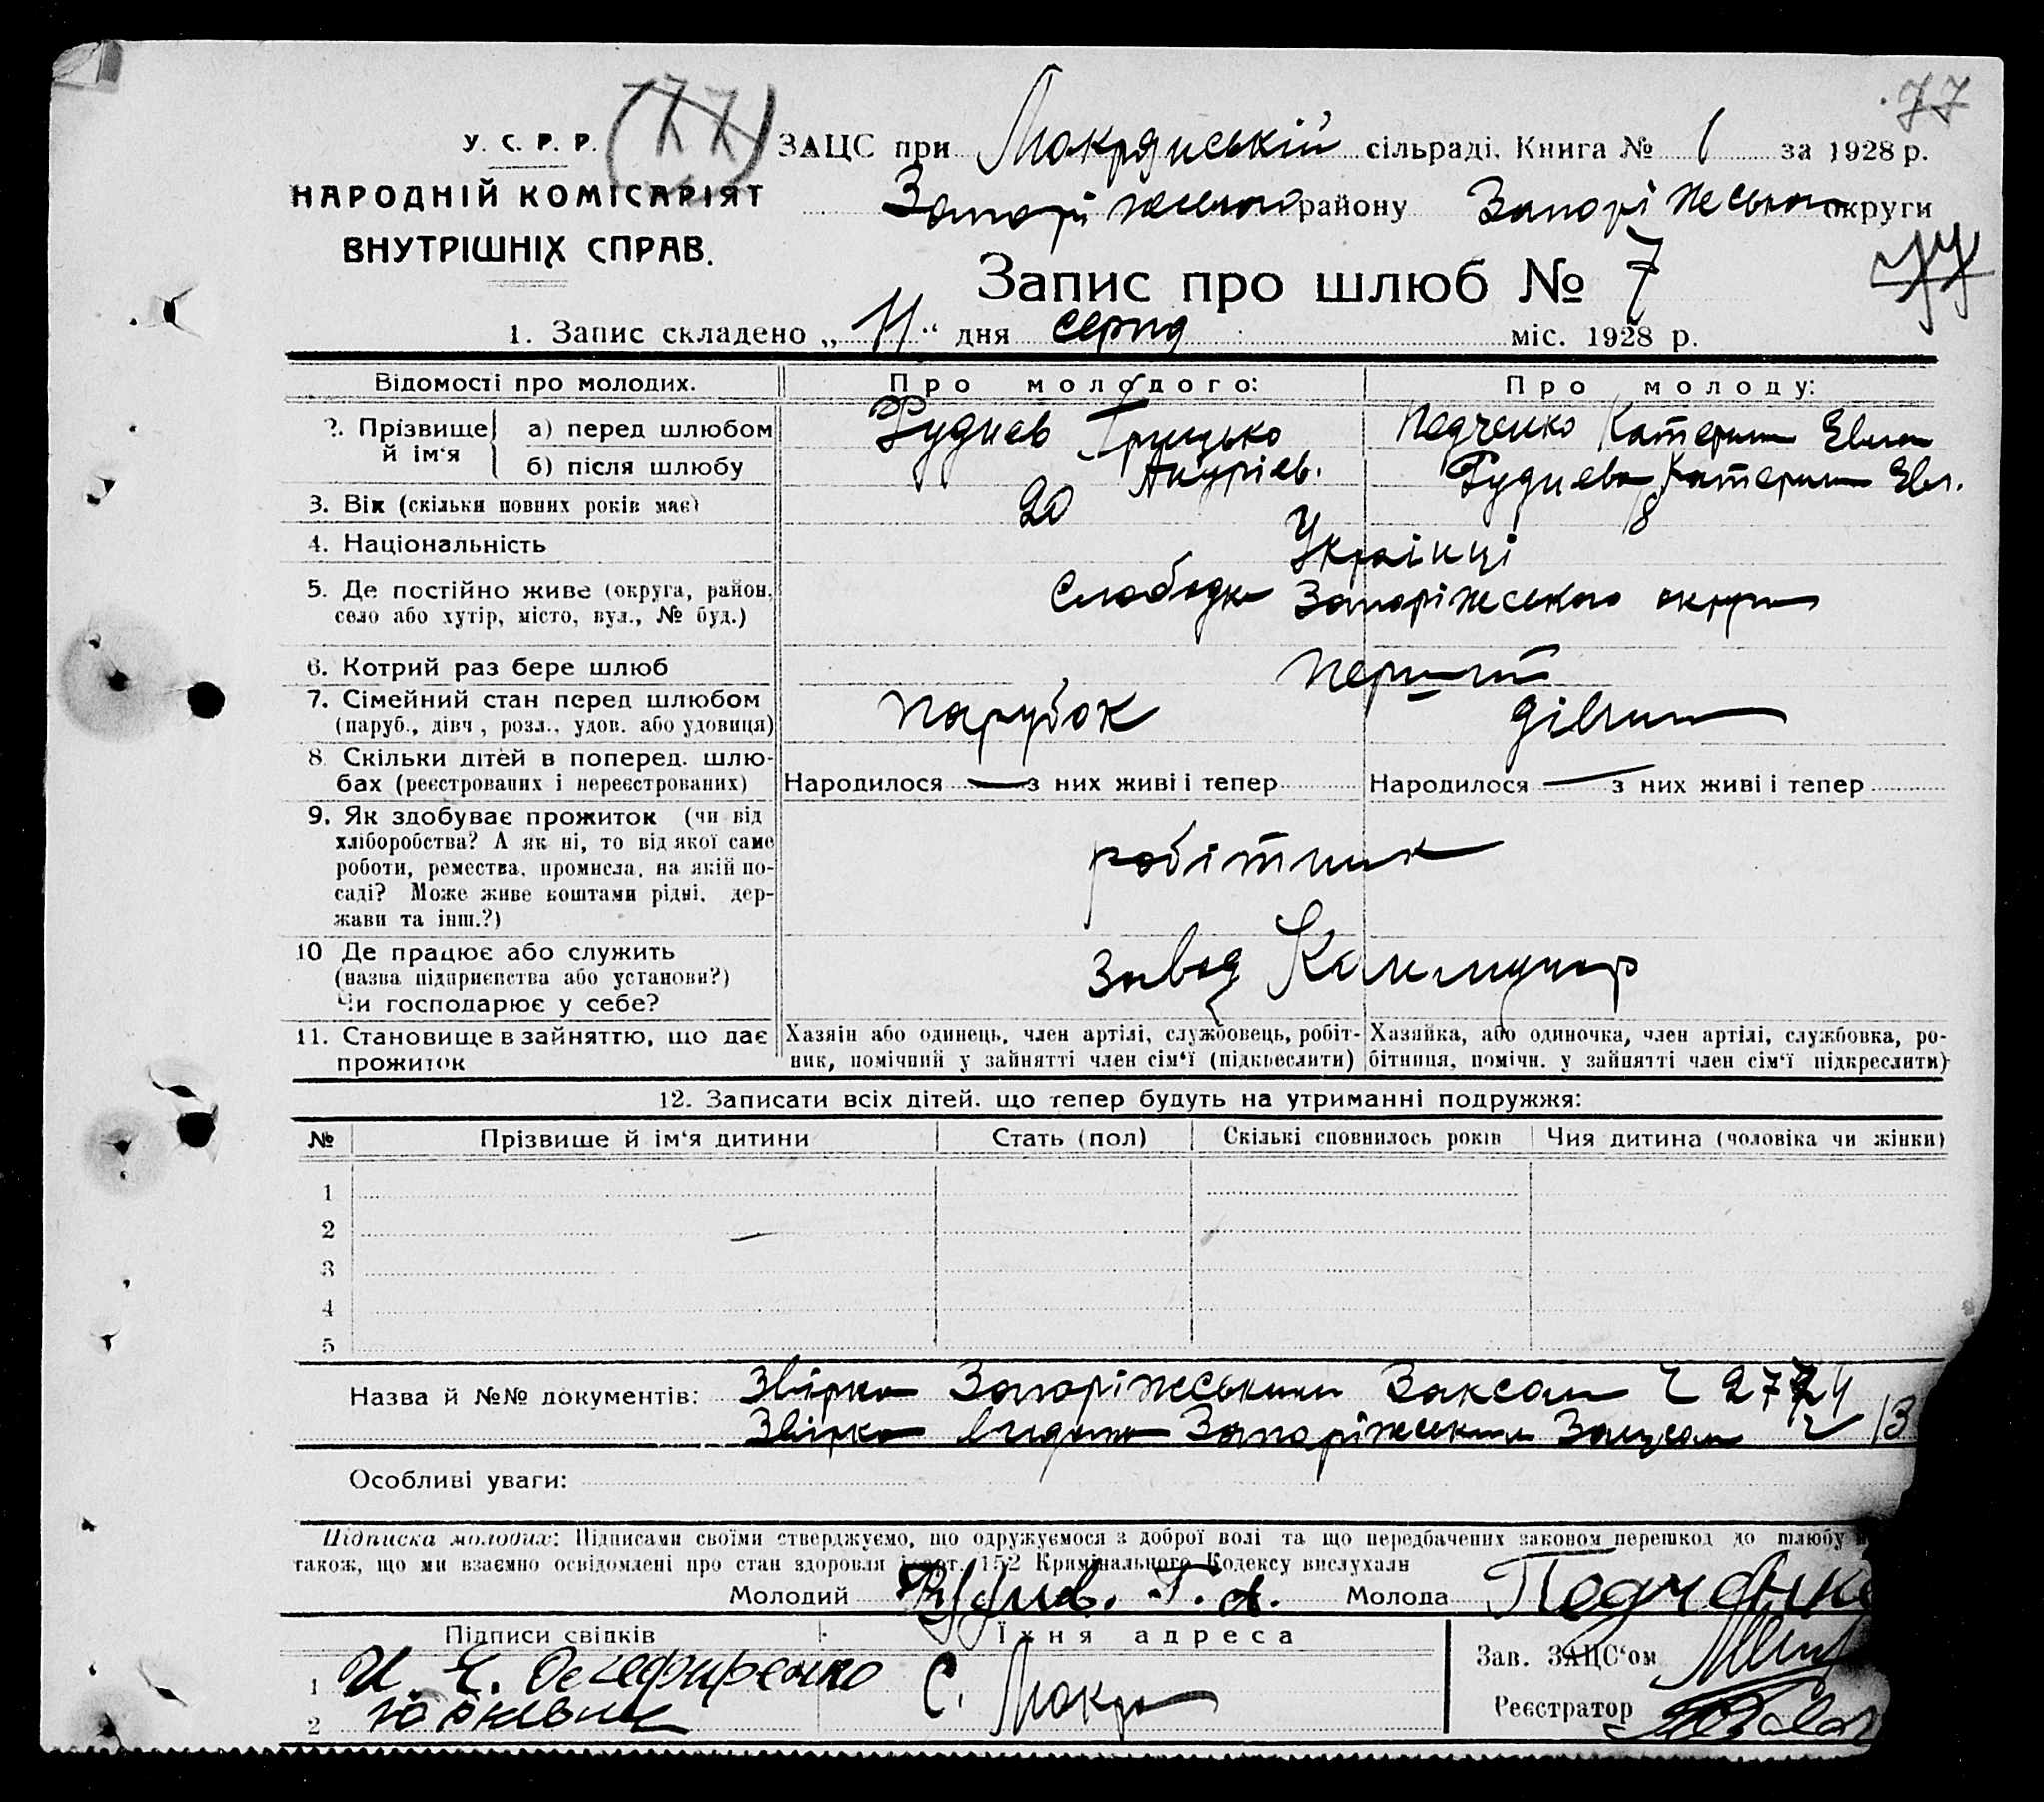 77
(77)
У. С. Р. Р.
ЗАЦС при Мокрянській сільраді. Книга № 1 за 1928 р.
НАРОДНІЙ КОМІСАРІЯТ
Запоріжського району Запоріжського округи
ВНУТРІШНІХ СПРАВ.
Запис про шлюб № 7
77
1. Запис складено „11“ дня серпд міс. 1928 р.
Відомості про молодих.
Про молодого:
Про молоду:
2. Прізвище й ім‘я
а) перед шлюбом
Руднєв Грицько Андріев.
Педченко Катерина
б) після шлюбу
Руднева Катерина
3. Вік (скільки повних років має)
20
18
4. Національність
Українці
5. Де постійно живе (округа, район,
село або хутір, місто, вул., № буд.)
Слободка Запоріжського округи
6. Котрий раз бере шлюб
перший
7. Сімейний стан перед шлюбом
(паруб., дівч., розл., удов. або удовиця)
парубок
дівчина
8. Скільки дітей в поперед. шлю-
бах (реєстрованих і нереєстрованих)
Народилося — з них живі і тепер
Народилося — з них живі і тепер
9. Як здобуває прожиток (чи від
хліборобства? А як ні, то від якої саме
роботи, ремества, промисла, на якій по-
саді? Може живе коштами рідні, дер-
жави та інш.?)
робітник
10 Де працює або служить
(назва підприємства або установи?)
Чи господарює у себе?
завод
11. Становище в зайняттю, що дає
прожиток
Хазяїн або одинець, член артілі, службовець, робіт-
ник, помічний у зайнятті член сім‘ї (підкреслити)
Хазяйка, або одиночка, член артілі, службовка, ро-
бітниця, помічн. у зайнятті член сім‘ї підкреслити)
12. Записати всіх дітей. що тепер будуть на утриманні подружжя:
№
Прізвище й ім‘я дитини
Стать (пол)
Скількі сповнилось років
Чия дитина (чоловіка чи жінки)
1
2
3
4
5
Назва й №№ документів: Звірка Запоріжським Заксом Ч
Звірка видана Запоріжським Зацсом Ч 13
Особливі уваги:
Підписка молодих: Підписами своїми стверджуємо, що одружуємося з доброї волі та що передбачених законом перешкод до шлюбу
також, що ми взаємно освідомлені про стан здоровля і арт. 152 Кримінального Кодексу вислухали
Молодий Руднів. Г. А. Молода Педченко
Підписи свідків
Їхня адреса
Зав. ЗАЦС‘ом
1 И. Е.
С. Мокра
2
Реєстратор